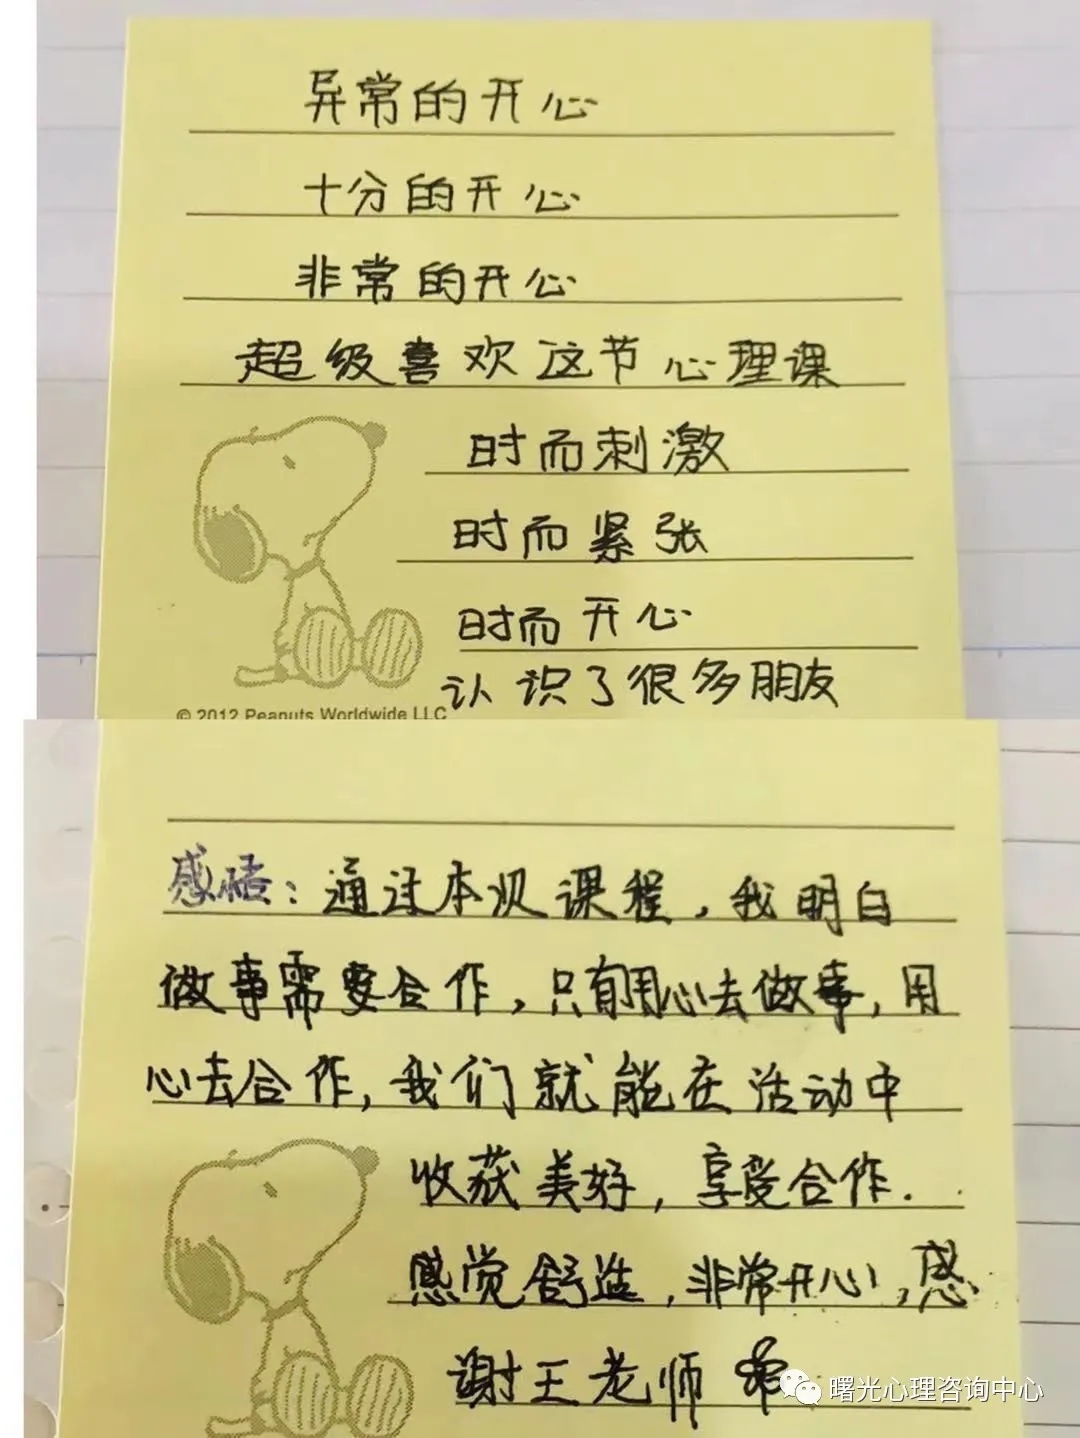 异常的开心
十分的开心
非常的开心
超级喜欢这节心理课
时而刺激
时而紧张
时而开心
认识了很多朋友
© 2012 Peanuts Worldwide LLC
感悟：通过本次课程，我明白
做事需要合作，只有用心去做事，用
心去合作，我们就能在活动中
收获美好，享受合作.
感觉舒适，非常开心，感
谢王老师
曙光心理咨询中心